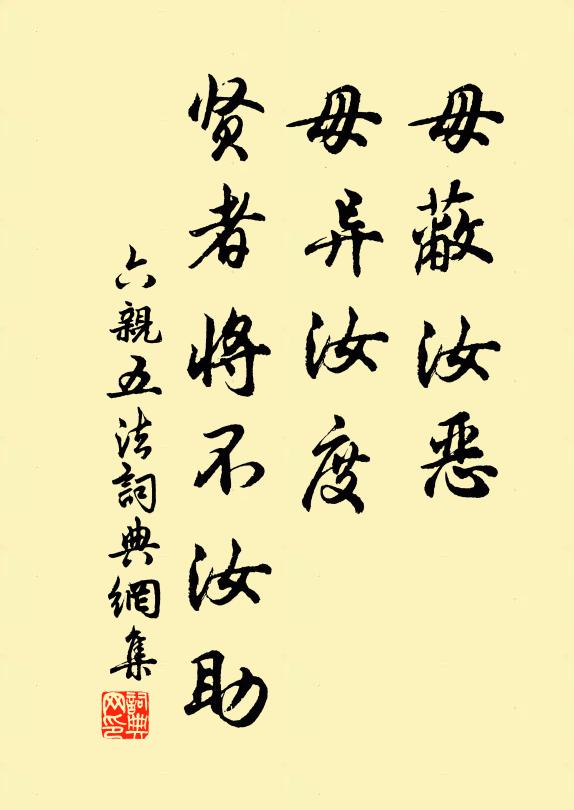 毋蔽汝惡
毋异汝度
贤者將不汝助
六親五法詞典網集
詞典网印